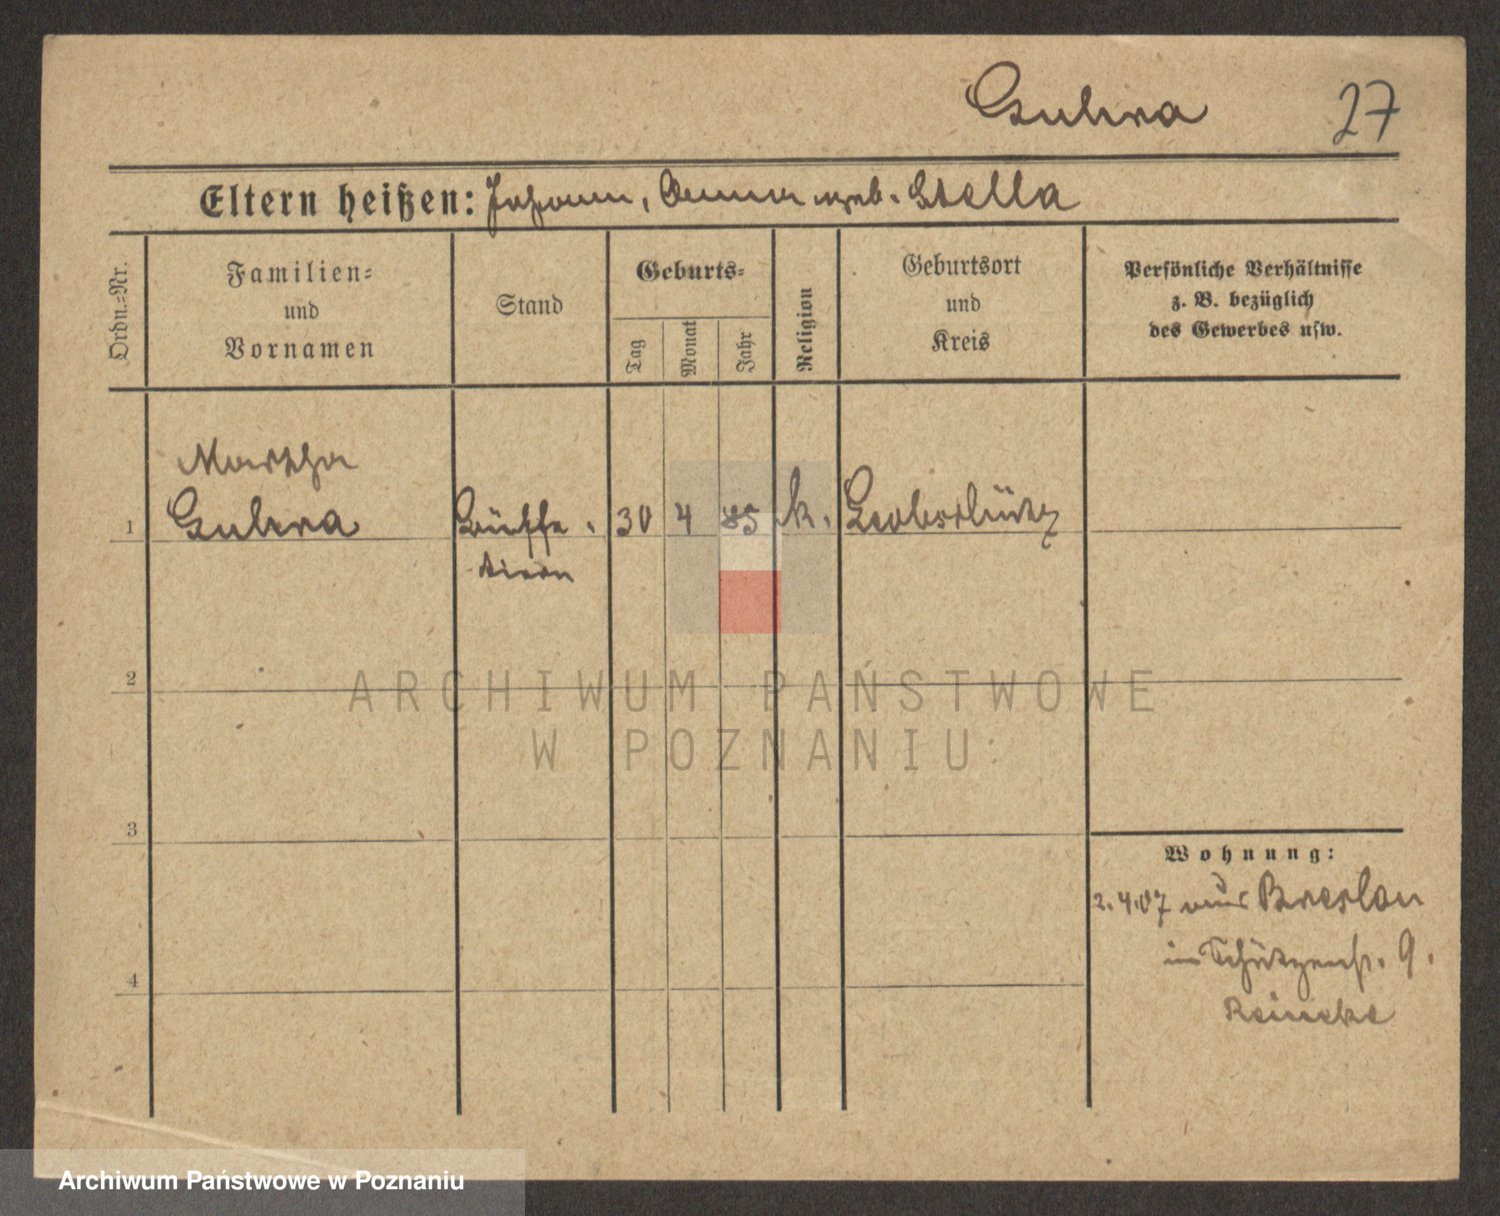 Gulwa 27
Eltern heißen: Johann, Anna geb. Stella
Ordn.-Nr.
Familien-
und
Vornamen
Stand
Geburts-
Tag
Monat
Jahr
Religion
Geburtsort
und
Kreis
Persönliche Verhältnisse
z. B. bezüglich
des Gewerbes usw.
Martha
1 Gulwa Büffe- 30 4 85 k. Leobschütz
tiern
2
3
4
Wohnung:
2.4.07 aus Breslau
in Schützenstr. 9.
Reinicke
ARCHIWUM PAŃSTWOWE
W POZNANIU
Archiwum Państwowe w Poznaniu